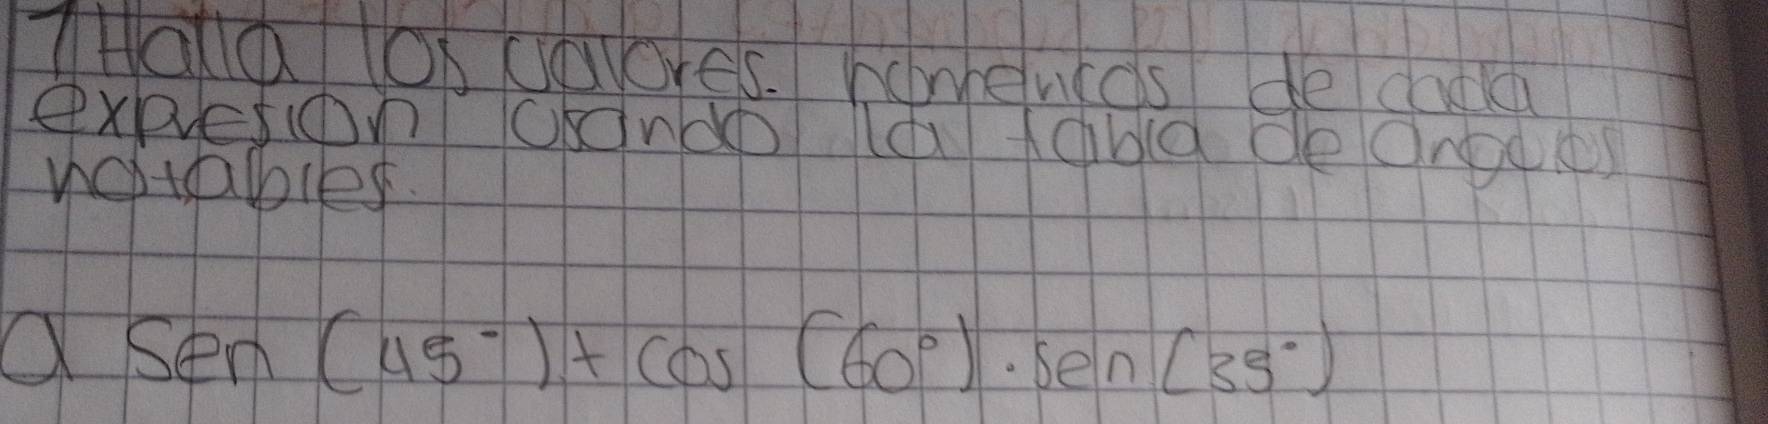 1 Halla los valores. númericos de cada
expresion usando la tabla de angulos
notables.
a Sen (45°) + cos (60°) . sen (35°)